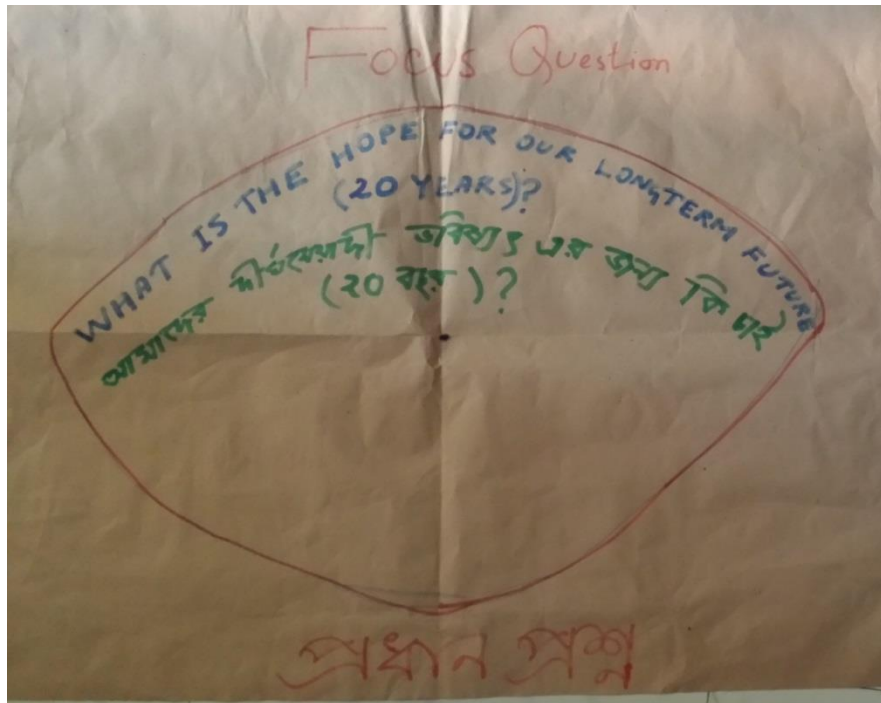 Focus Question
WHAT IS THE HOPE FOR OUR LONGTERM FUTURE
(20 YEARS)?
আমাদের দীর্ঘমেয়াদী ভবিষ্যৎ এর জন্য কি চাই
(২০ বছর)?
প্রধান প্রশ্ন